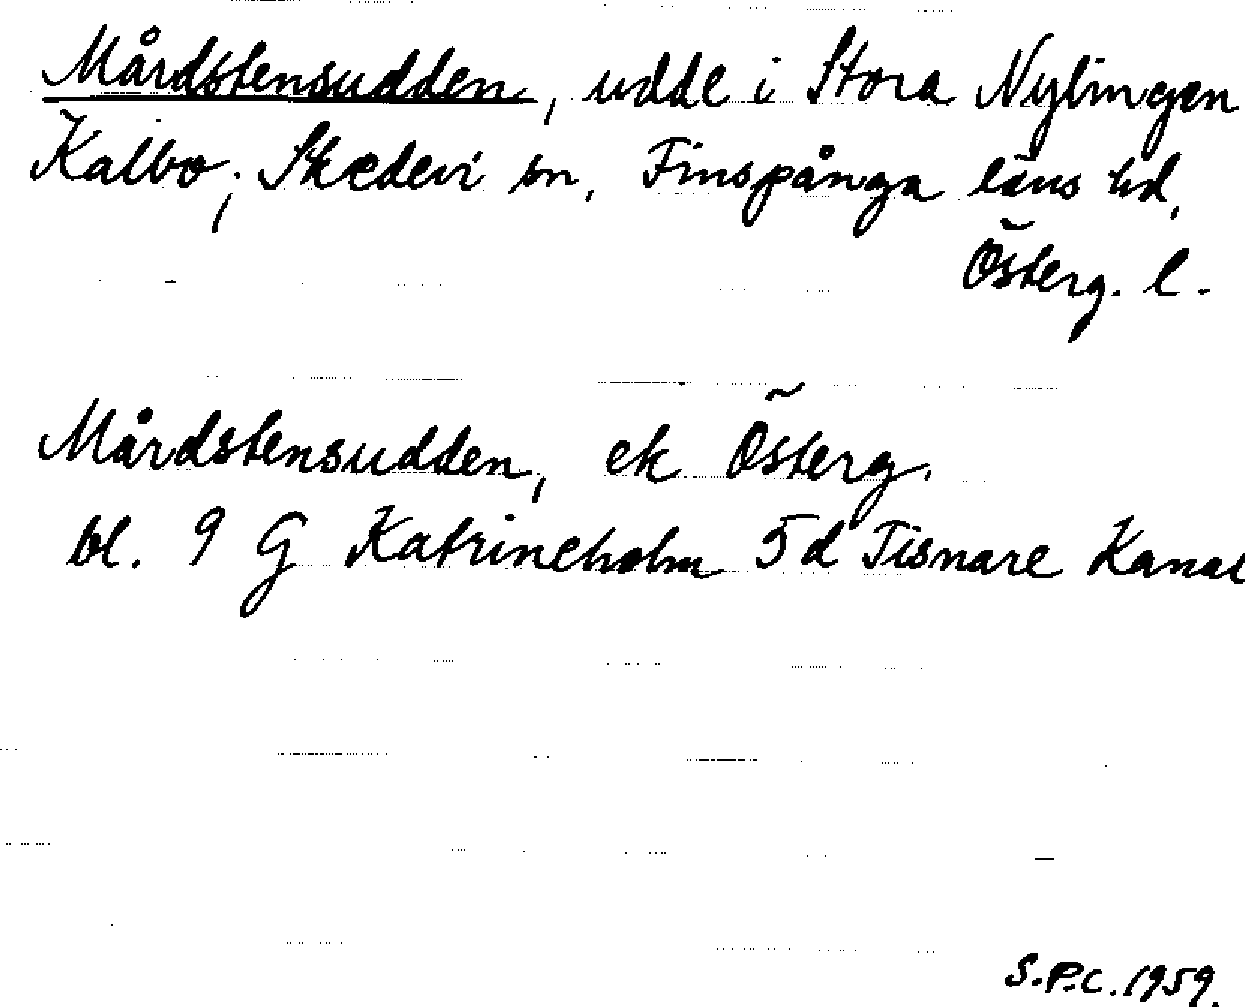 Mårdstensudden, udde i Stora Nylingen
Kalbo, Skedevi sn, Finspånga läns hd,
Österg. l.
Mårdstensudden, ek Österg.
bl. 9 G Katrineholm 5 d Tisnare Kanal
S.P.C. 1959.